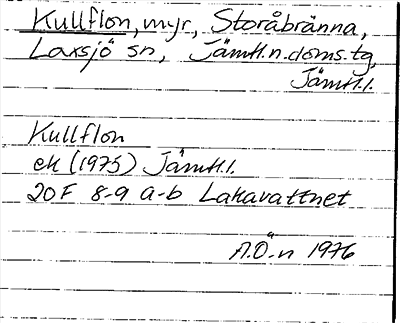 Kullflon, myr, Storåbränna,
Laxsjö sn, Jämtl.n.doms.tg,
Jämtl.l.
Kullflon
ek (1975) Jämtl.l.
20F 8-9 a-b Lakavattnet
A.Ö-n 1976